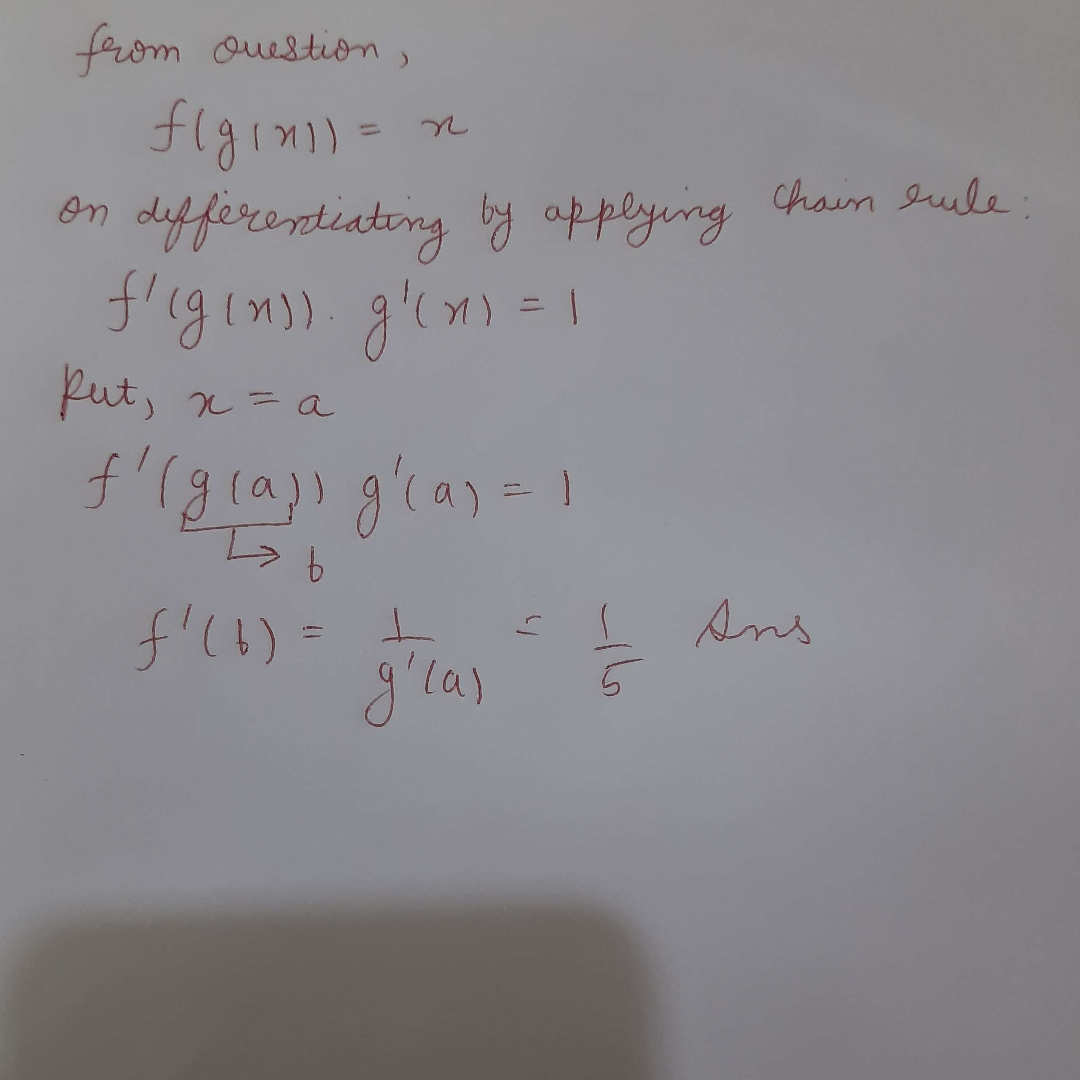 from question,
f(g(x)) = x
on differentiating by applying chain rule:
f'(g(x)). g'(x) = 1
Put, x = a
f'(g(a)) g'(a) = 1
↳ b
f'(b) = 1/g'(a) = 1/5 Ans